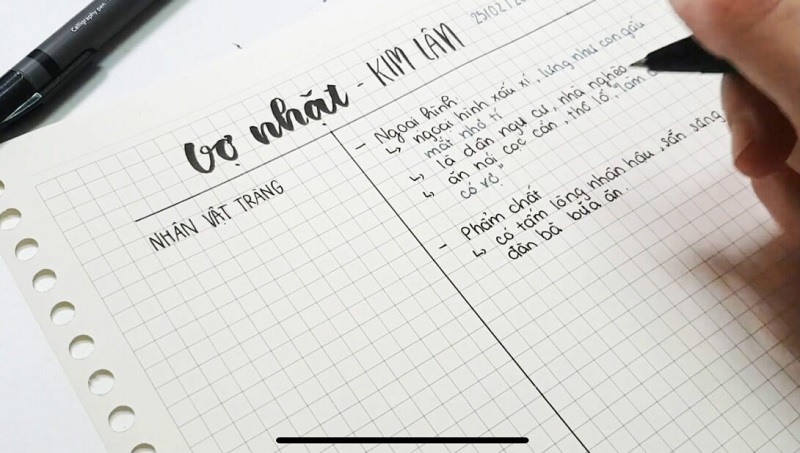 Calligraphy pen
25/02/
vợ nhặt - KIM LÂN
NHÂN VẬT TRÀNG
- Ngoại hình
↳ ngoại hình xấu xí, lưng như con gấu
mắt nhỏ tí
↳ là dân ngụ cư, nhà nghèo
↳ ăn nói cọc cằn, thô lỗ, "làm
có vợ"
- Phẩm chất
↳ có tấm lòng nhân hậu, sẵn sàng
đàn bà bữa ăn.